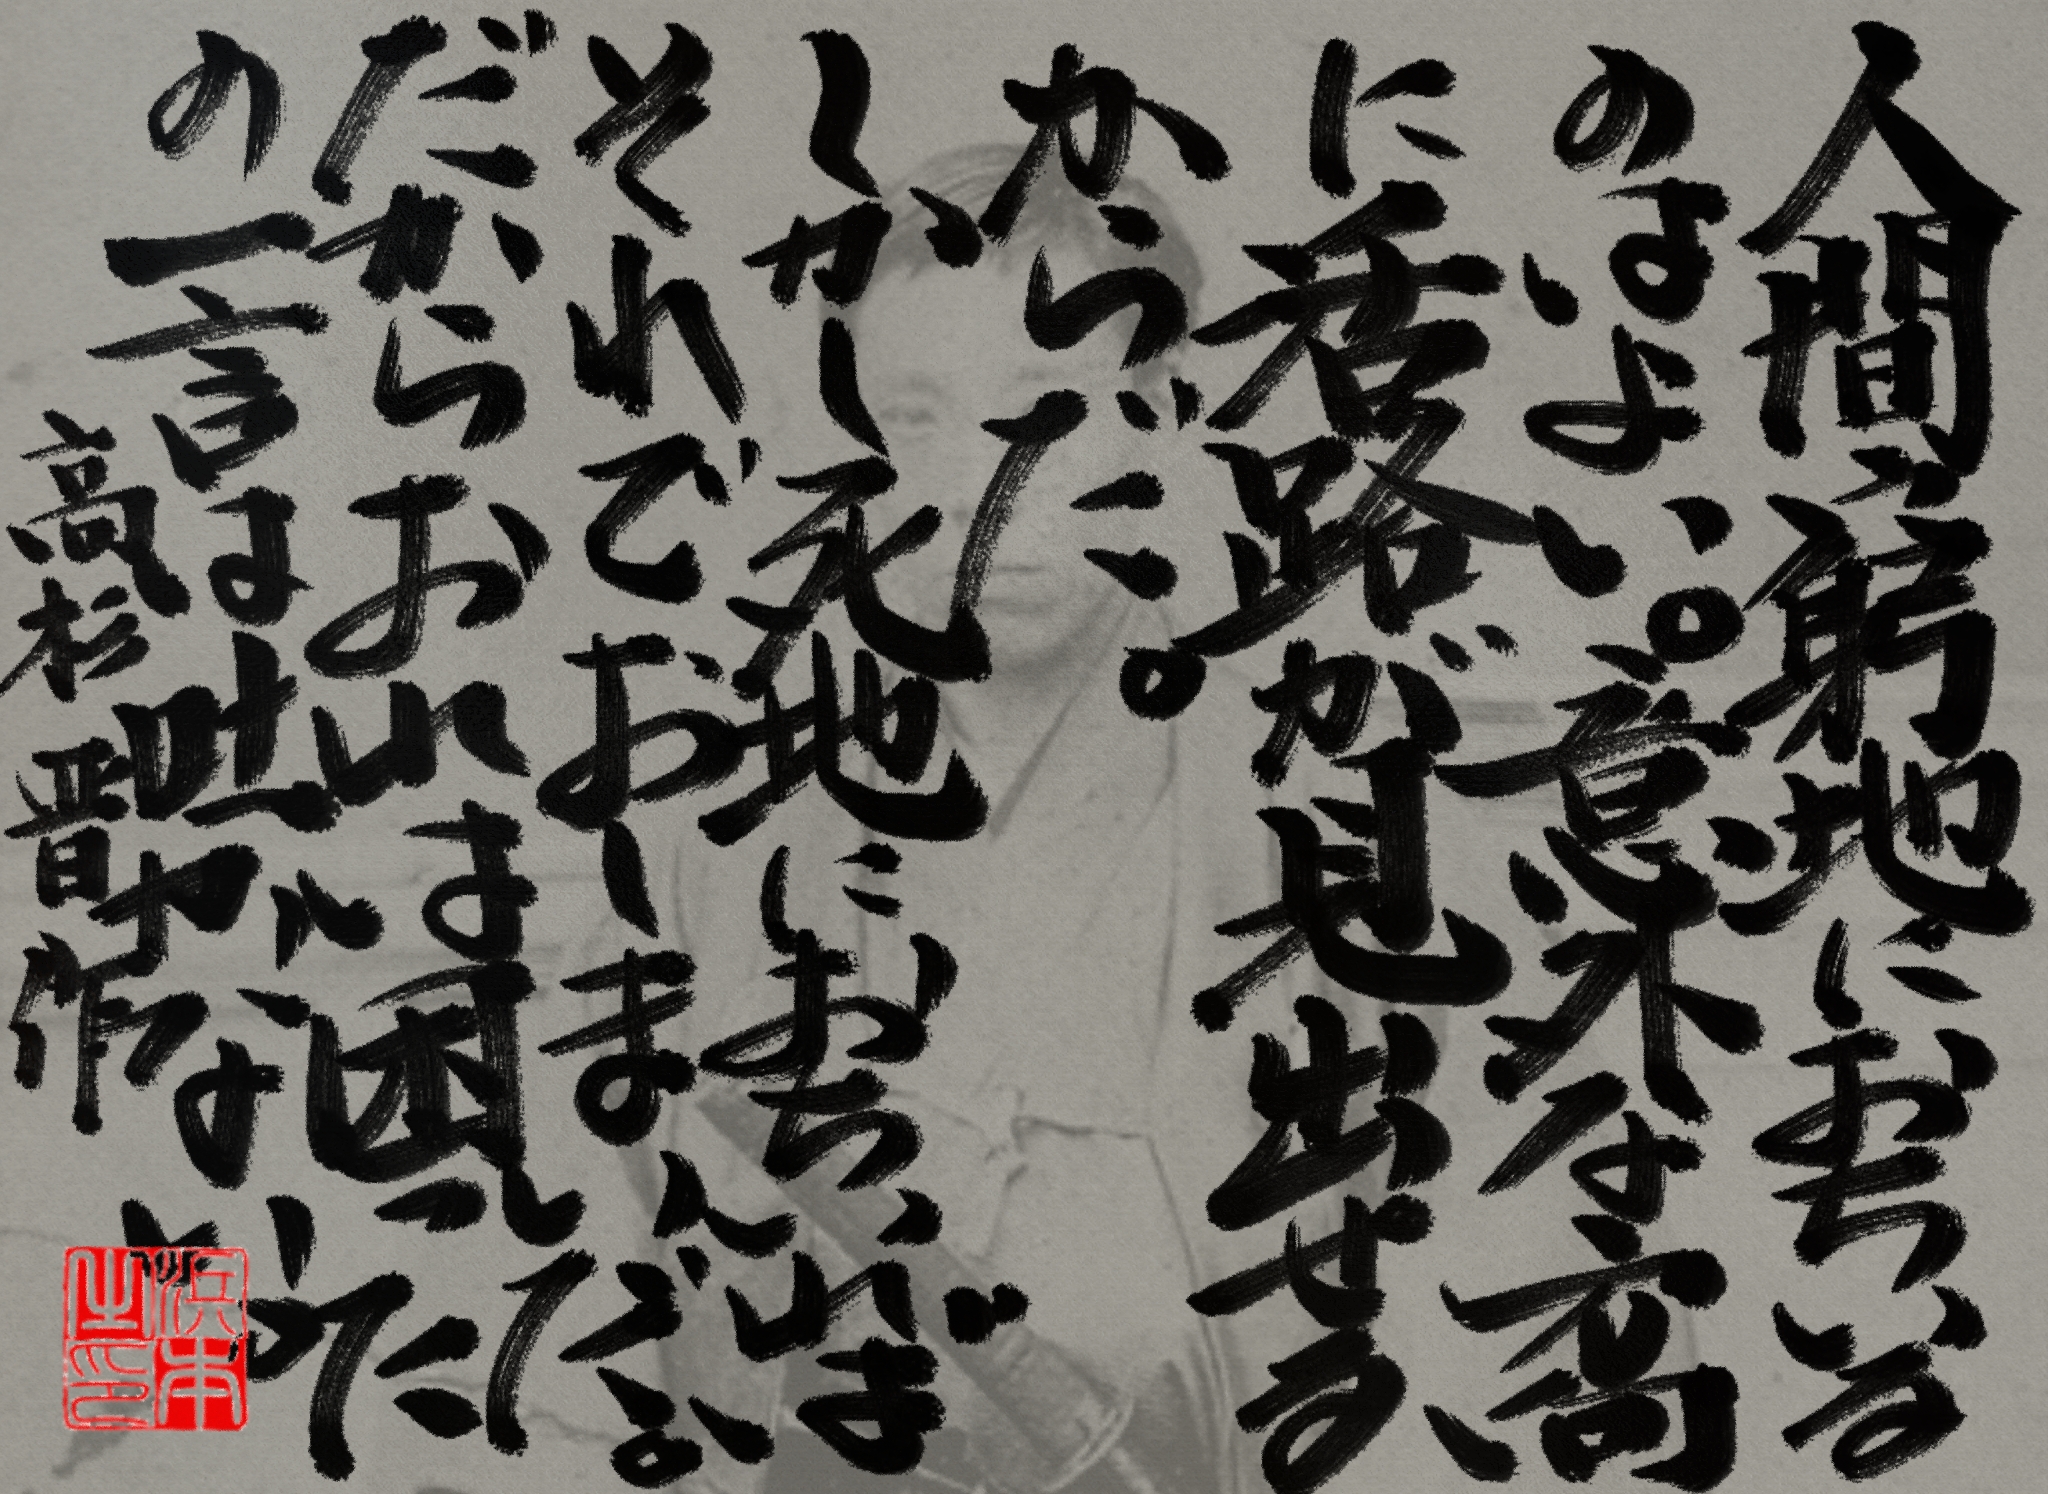 人間、窮地におちいる
のはよい。意外な方角
に活路が見出せる
からだ。
しかし死地におちいれば
それでおしまいだ。
だからおれは困った
の一言は吐かない
高杉晋作
浜本之印